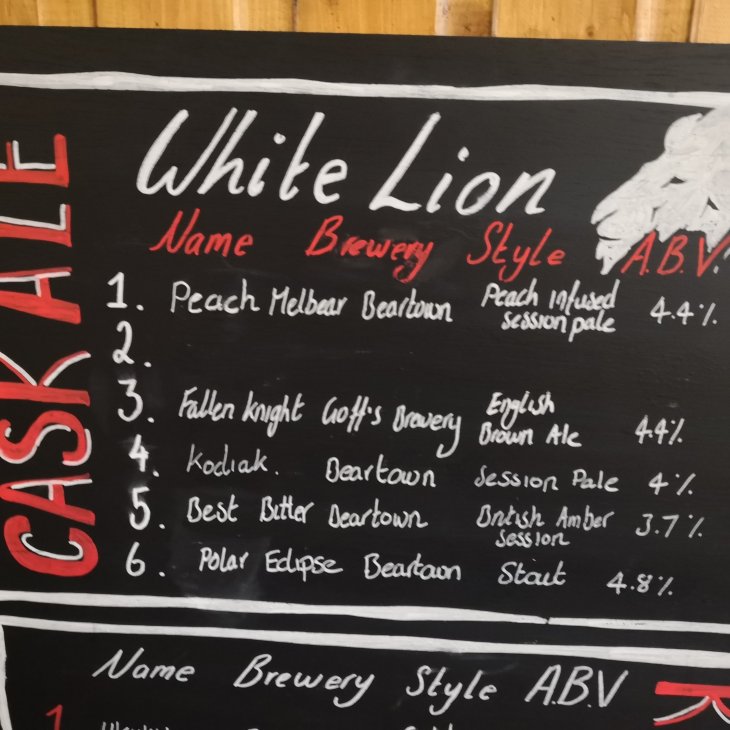 CASK ALE
White Lion
Name Brewery Style A.B.V.
1. Peach Melbear Beartown Peach infused session pale 4.4%
2.
3. Fallen Knight Goff's Brewery English Brown Ale 4.4%
4. Kodiak. Beartown Session Pale 4%
5. Best Bitter Beartown British Amber Session 3.7%
6. Polar Eclipse Beartown Stout 4.8%
Name Brewery Style A.B.V
1